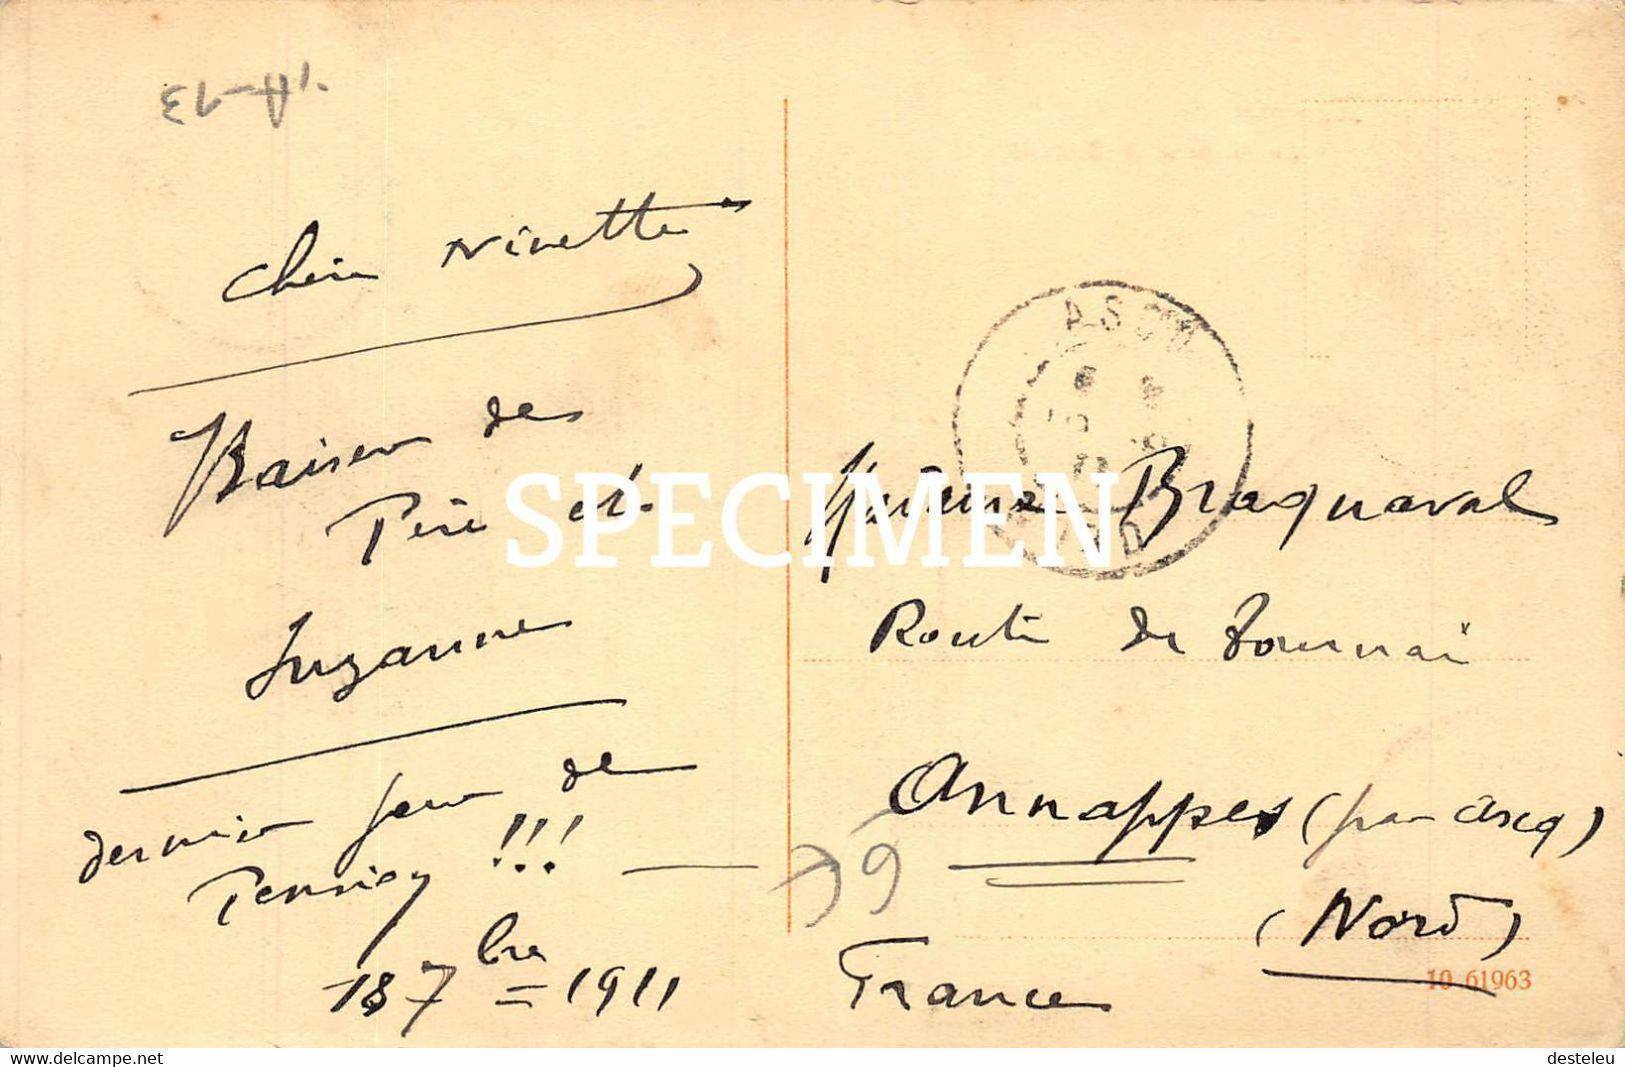 A-13
Chère Ninette
Baiser de
Père et
Suzanne
dernier jour de
Pension !!!
18 7bre = 1911
SPECIMEN
ASCQ
Braquaval
Route de Tournai
Annappes (par Ascq)
(Nord)
France
10 61963
www.delcampe.net
desteleu